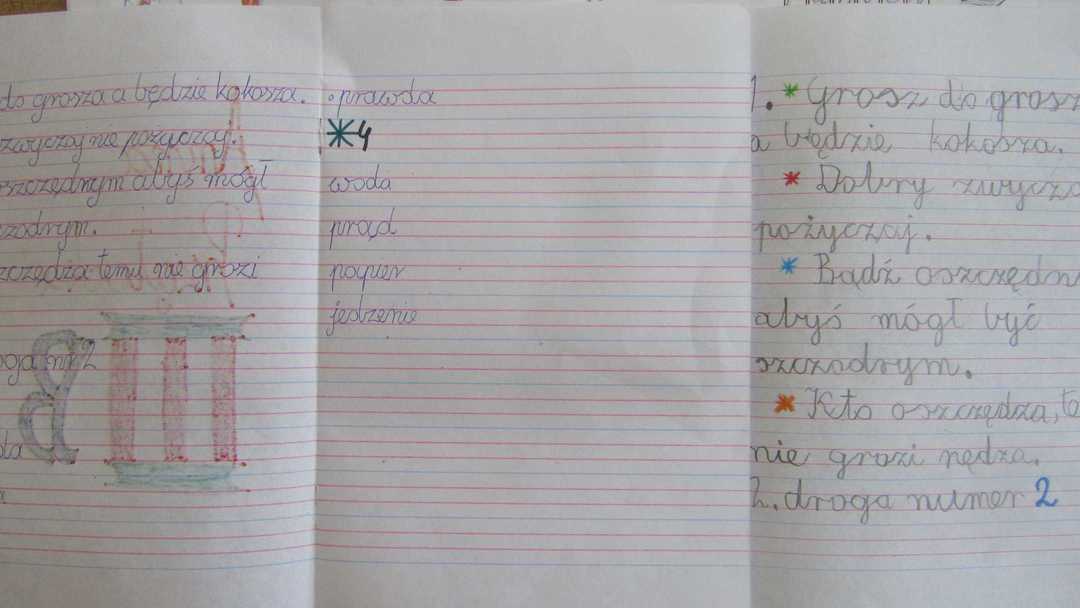 do grosza a będzie kokosza.
zwyczaj nie pożyczaj.
oszczędnym abyś mógł
szczodrym.
oszczędza temu nie grozi
nr 2
prawda
4
woda
prąd
papier
jedzenie
1. Grosz do grosz
a będzie kokosza.
Dobry zwycza
pożyczaj.
Bądź oszczędn
abyś mógł być
szczodrym.
Kto oszczędza, te
nie grozi nędza.
2. droga numer 2